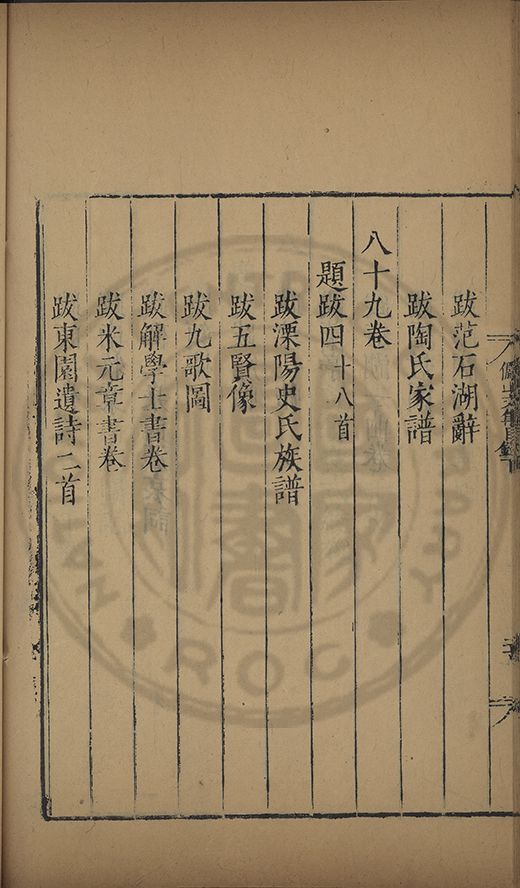 跋范石湖辭
跋陶氏家譜
八十九卷
題跋四十八首
跋溧陽史氏族譜
跋五賢像
跋九歌圖
跋解學士書卷
跋米元章書卷
跋東園遺詩二首